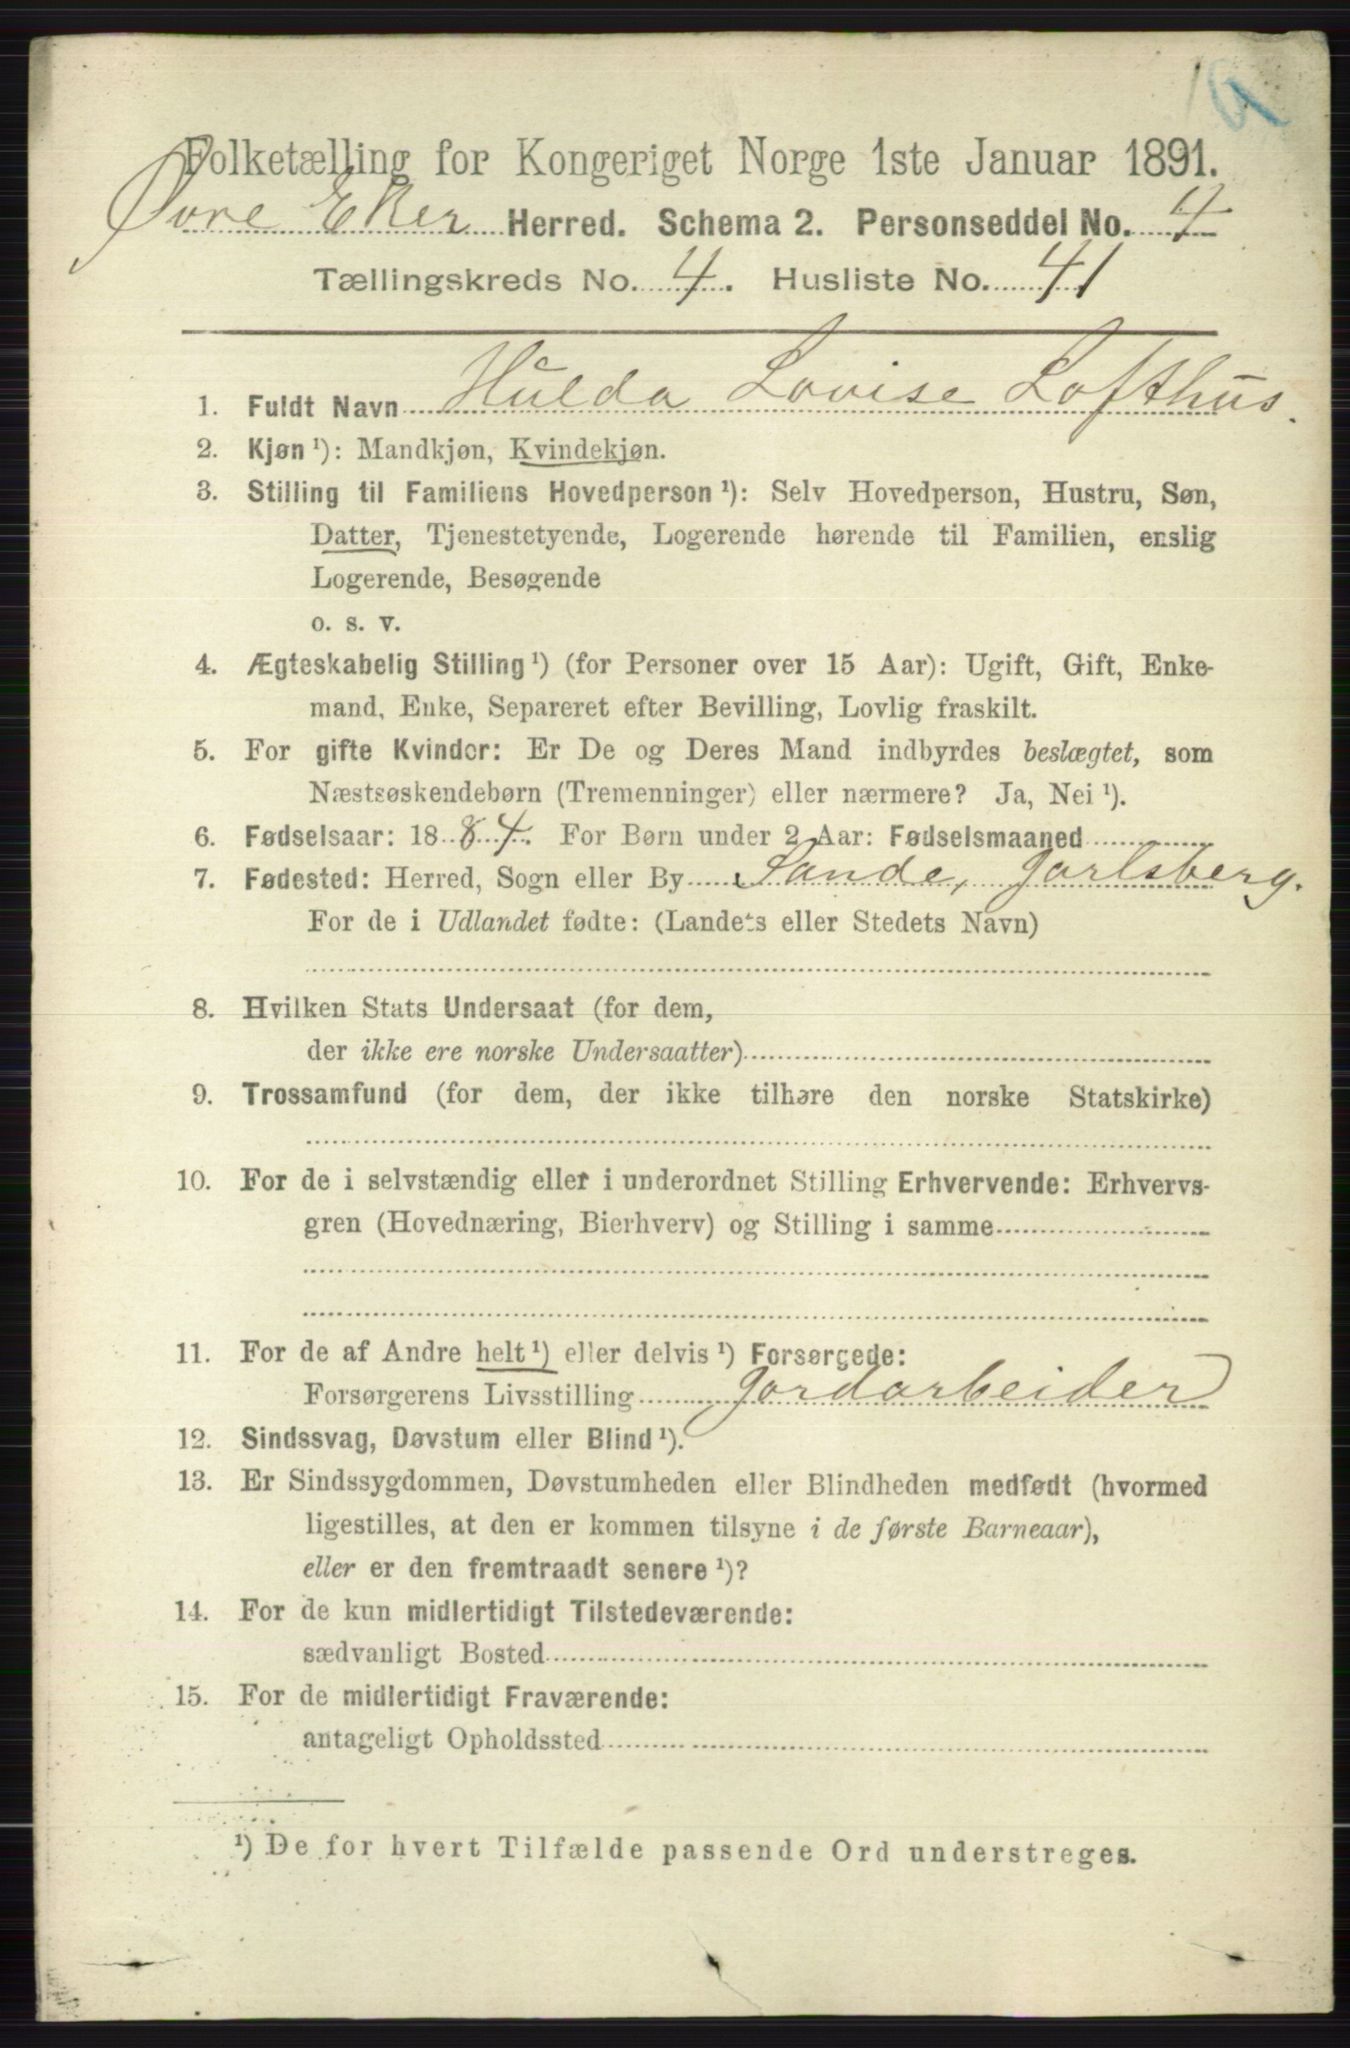 Folketælling for Kongeriget Norge 1ste Januar 1891.
Øvre Eker Herred. Schema 2. Personseddel No. 4
Tællingskreds No. 4. Husliste No. 41
1. Fuldt Navn Hulda Lovise Lofthus.
2. Kjøn ¹): Mandkjøn, Kvindekjøn.
3. Stilling til Familiens Hovedperson ¹): Selv Hovedperson, Hustru, Søn,
Datter, Tjenestetyende, Logerende hørende til Familien, enslig
Logerende, Besøgende
o. s. v.
4. Ægteskabelig Stilling ¹) (for Personer over 15 Aar): Ugift, Gift, Enke-
mand, Enke, Separeret efter Bevilling, Lovlig fraskilt.
5. For gifte Kvinder: Er De og Deres Mand indbyrdes beslægtet, som
Næstsøskendebørn (Tremenninger) eller nærmere? Ja, Nei ¹).
6. Fødselsaar: 1884. For Børn under 2 Aar: Fødselsmaaned
7. Fødested: Herred, Sogn eller By Sande, Jarlsberg.
For de i Udlandet fødte: (Landets eller Stedets Navn)
8. Hvilken Stats Undersaat (for dem,
der ikke ere norske Undersaatter)
9. Trossamfund (for dem, der ikke tilhøre den norske Statskirke)
10. For de i selvstændig eller i underordnet Stilling Erhvervende: Erhvervs-
gren (Hovednæring, Bierhverv) og Stilling i samme
11. For de af Andre helt ¹) eller delvis ¹) Forsørgede:
Forsørgerens Livsstilling Jordarbeider
12. Sindssvag, Døvstum eller Blind ¹).
13. Er Sindssygdommen, Døvstumheden eller Blindheden medfødt (hvormed
ligestilles, at den er kommen tilsyne i de første Barneaar),
eller er den fremtraadt senere ¹)?
14. For de kun midlertidigt Tilstedeværende:
sædvanligt Bosted
15. For de midlertidigt Fraværende:
antageligt Opholdssted
¹) De for hvert Tilfælde passende Ord understreges.